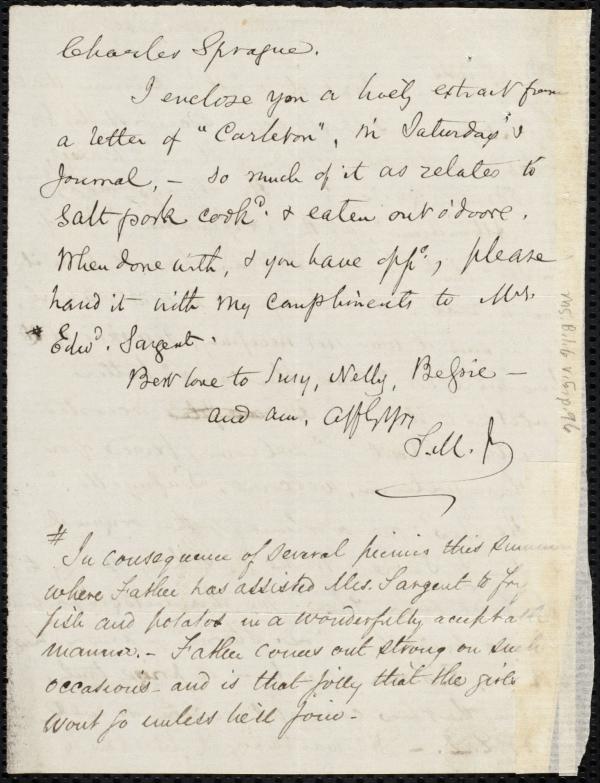 Charles Sprague.
I enclose you a lively extract from
a letter of "Carleton", in Saturday's
Journal, — so much of it as relates to
salt pork cook'd. & eaten out o'doors.
When done with, & you have oppy., please
hand it with my compliments to Mrs.
* Edwd. Sargent.
Best love to Susy, Nelly, Bessie —
and am, affly yrs
S. M. Jr
# In consequence of several picnics this summer
where Father has assisted Mrs. Sargent to fry
fish and potatos in a wonderfully acceptable
manner. – Father comes out strong on such
occasions – and is that jolly that the girls
wont go unless he'll join –
Ms.B.1.6 v.15, p.96